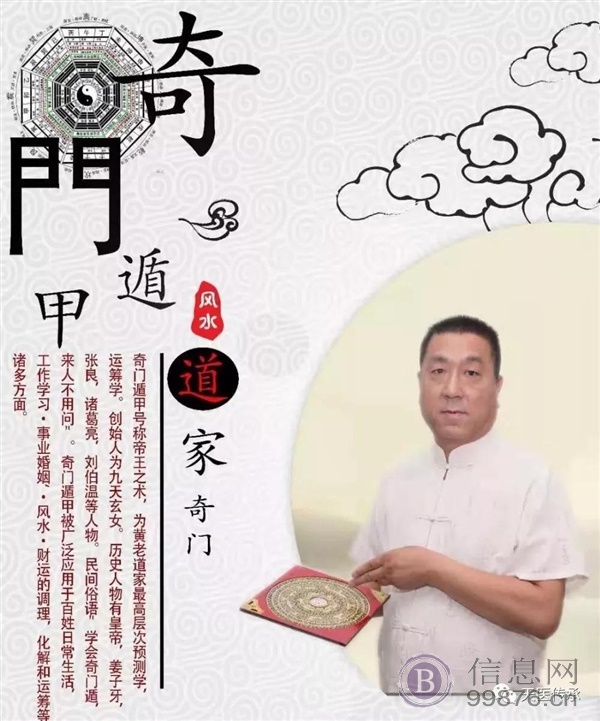 奇
門
遁
甲
风水
道家奇门
奇门遁甲号称帝王之术，为黄老道家最高层次预测学，
运筹学。创始人为九天玄女。历史人物有皇帝，姜子牙，
张良，诸葛亮，刘伯温等人物。民间俗语"学会奇门遁，
来人不用问"。奇门遁甲被广泛应用于百姓日常生活，
工作学习·事业婚姻·风水·财运的调理，化解和运筹等
诸多方面。
B
信息网
99876.cn
传承